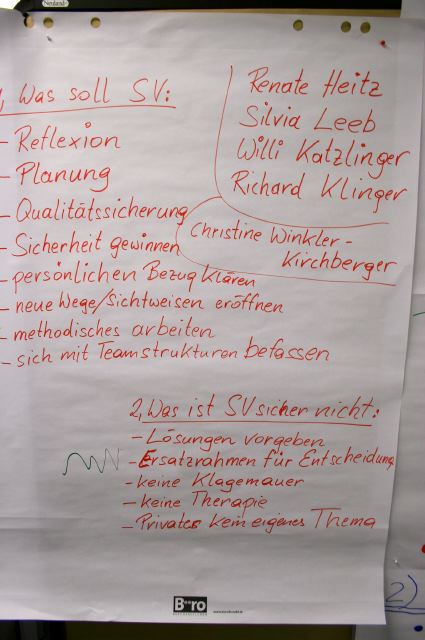 Neuland
1, Was soll SV:
- Reflexion
- Planung
- Qualitätssicherung
- Sicherheit gewinnen
- persönlichen Bezug klären
- neue Wege/Sichtweisen eröffnen
- methodisches arbeiten
- sich mit Teamstrukturen befassen
Renate Heitz
Silvia Leeb
Willi Katzlinger
Richard Klinger
Christine Winkler-
Kirchberger
2, Was ist SV sicher nicht:
- Lösungen vorgeben
- Ersatzrahmen für Entscheidung
- keine Klagemauer
- keine Therapie
- Privates kein eigenes Thema
2)